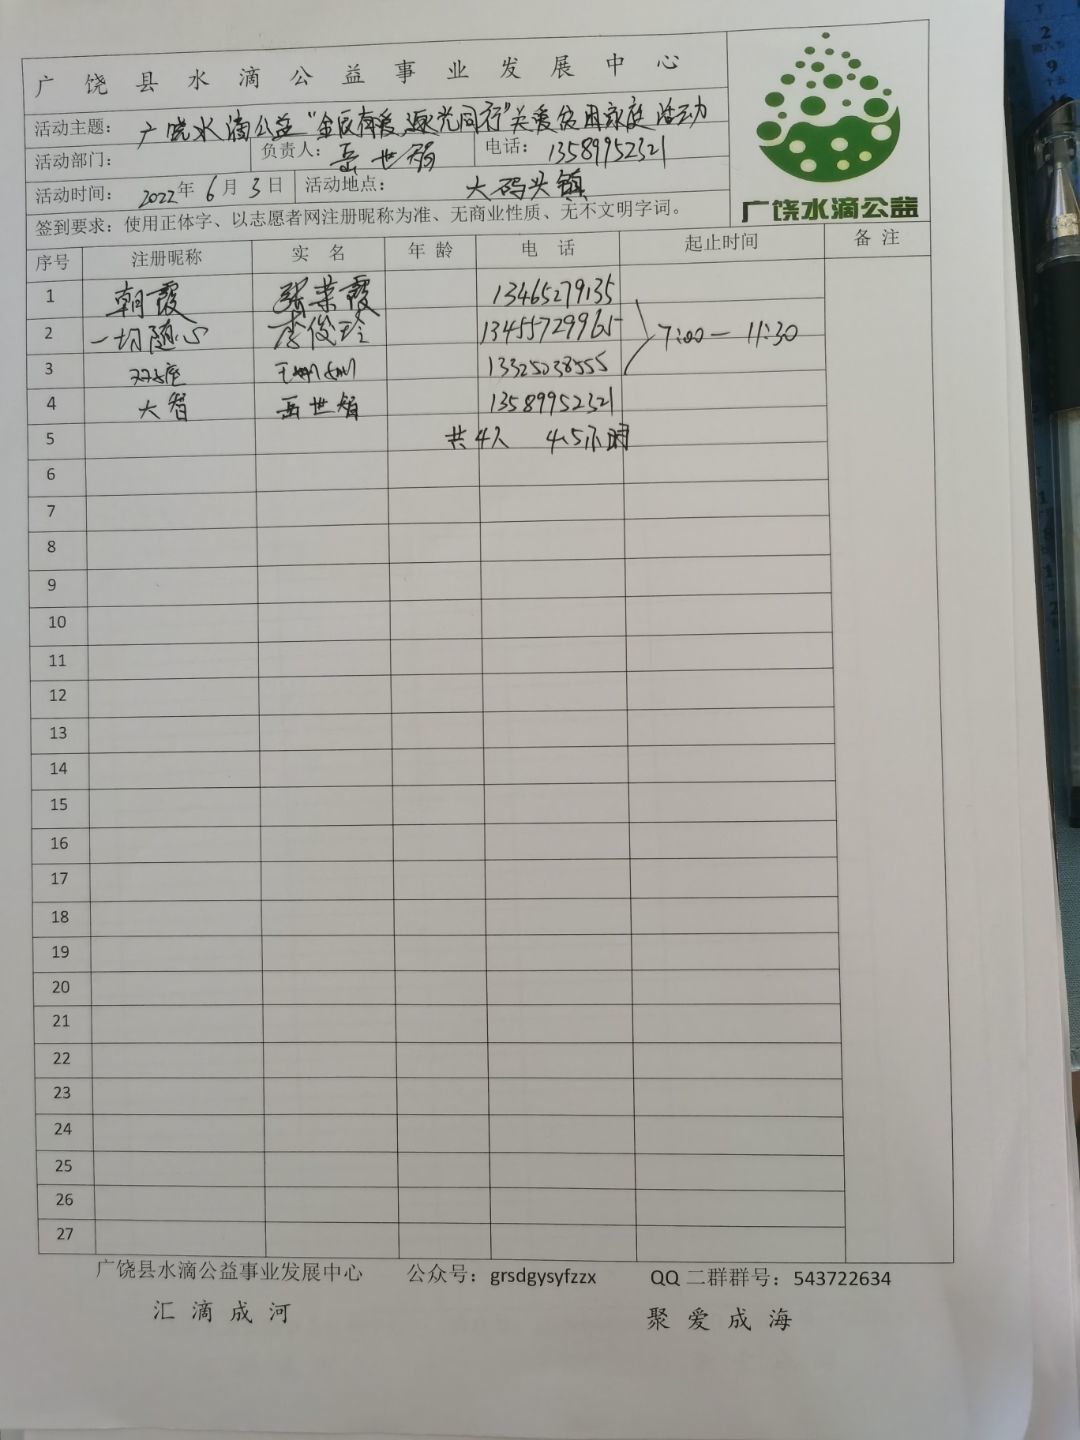 广饶县水滴公益事业发展中心
活动主题：广饶水滴公益“金辰有爱 逐光同行”关爱信用家庭活动
活动部门： 负责人：岳世智 电话：13589952321
活动时间：2022年6月3日 活动地点：大码头镇
签到要求：使用正体字、以志愿者网注册昵称为准、无商业性质、无不文明字词。
广饶水滴公益
序号 注册昵称 实名 年龄 电话 起止时间 备注
1 朝霞 张荣霞 13465279135
2 一切随心 李俊玲 13455729965 7:00—11:30
3 王姗姗 13325238555
4 大智 岳世智 13589952321
5 共4人 4.5小时
6
7
8
9
10
11
12
13
14
15
16
17
18
19
20
21
22
23
24
25
26
27
广饶县水滴公益事业发展中心 公众号：grsdgysyfzzx QQ二群群号：543722634
汇滴成河 聚爱成海